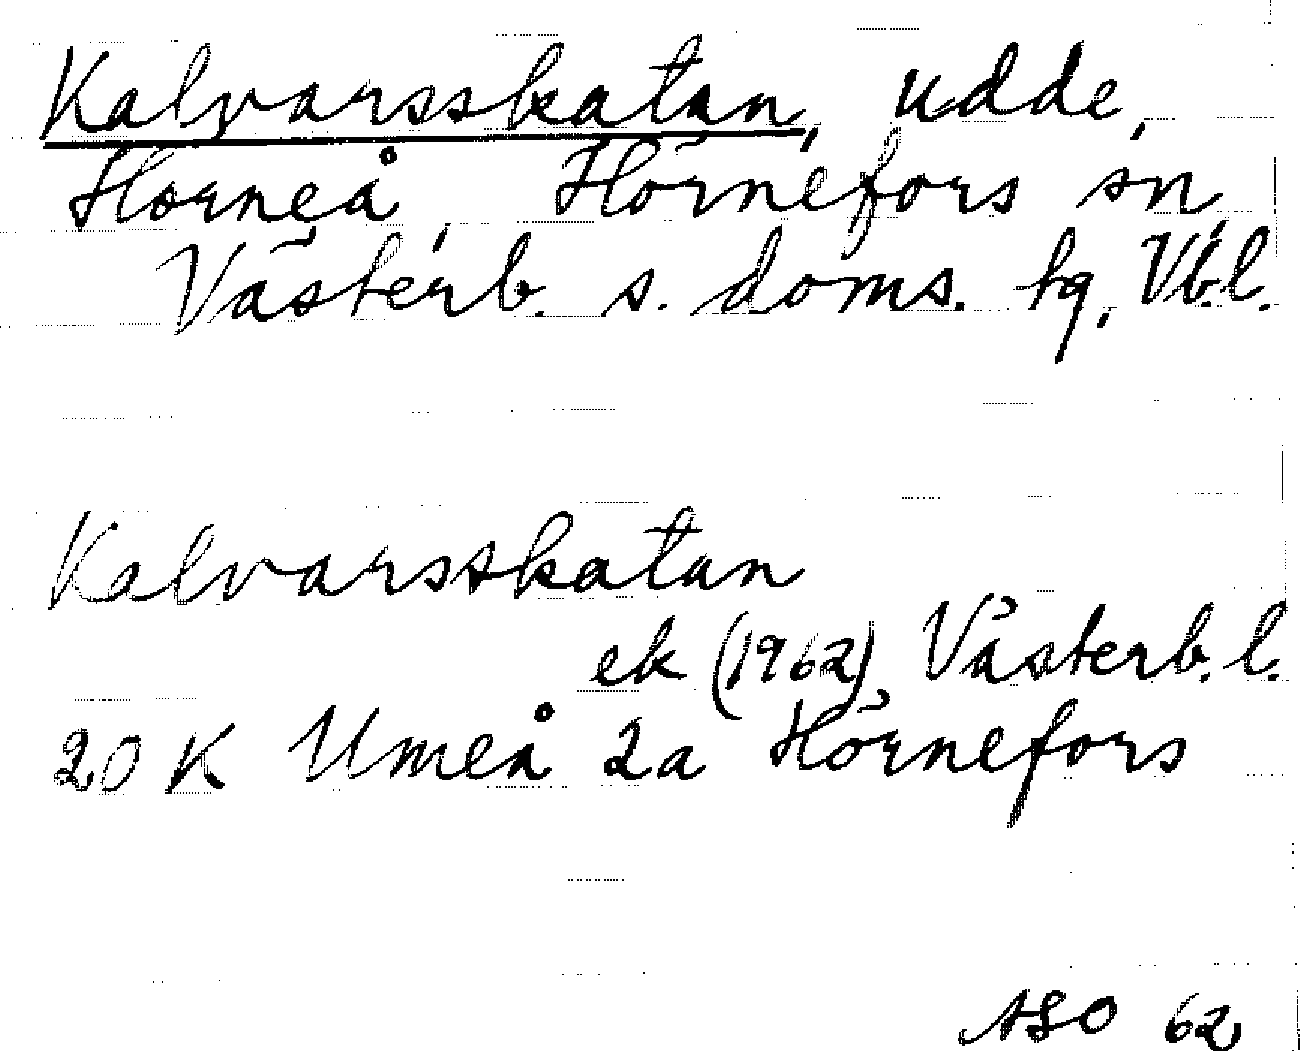 Kalvarsskatan, udde,
Horneå, Hörnefors sn,
Västerb. s. doms. tg, Vb.l.
Kalvarsskatan
ek (1962) Västerb. l.
20 K Umeå 2a Hörnefors
ASO 62